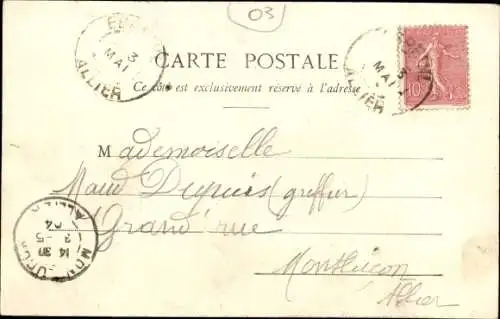 03
3
MAI
ALLIER
CARTE POSTALE
Ce côté est exclusivement réservé à l'adresse
MAI
ALLIER
10
Mademoiselle
Maud Dupuis (greffier)
Grand'rue
Montluçon
Allier
14 30
3 -5
04